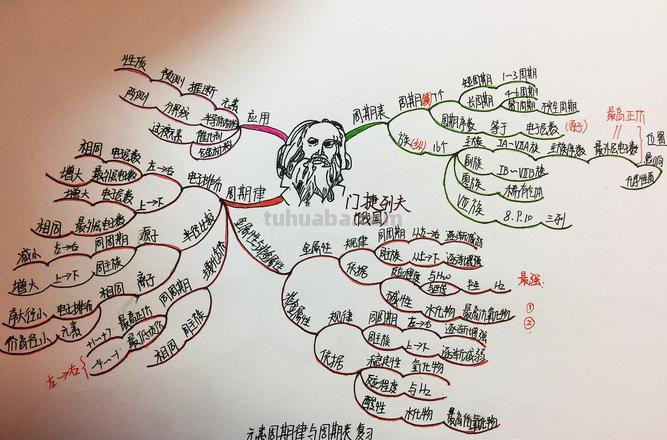 门捷列夫
(俄国)
tuhuabao.com
周期表
周期(横) 7个
短周期 1-3周期
长周期 4-6周期
第7周期 不完全周期
周期序数 等于 电子层数 (原子)
族(纵) 16个
主族 IA-VIIA族 主族序数 最外层电数
最高正价
=
副族 IB-VIIB族
稀有气体
VIII族 8.9.10 三列
位置
化学性质
应用
性质 预测 推断 元素
两测 分界线 半导体材料
过渡元素 催化剂
周期律
电子排布
相同 电子层数 左→右
增大 最外层电数
增大 电子层数 上→下
相同 最外层电数
半径比较
减小 左→右 同周期 原子
增大 上→下 同主族
相同 离子
电子排布
元素
价高径小
同周期
最高正价 +1→+7
最低负价 -4→-1
左→右
相同 同主族
金属性与非金属性
金属性
规律 同周期 从左→右 逐渐减弱
同主族 从上→下 逐渐增强
依据 反应程度 与H₂O
与酸 H₂
碱性 水化物 最高价氧化物
最强:
①
②
非金属性
规律 同周期 左→右 逐渐增强
同主族 上→下 逐渐减弱
依据 稳定性 氢化物
反应程度 与H₂
酸性 水化物 最高价氧化物
元素周期律与周期表 复习